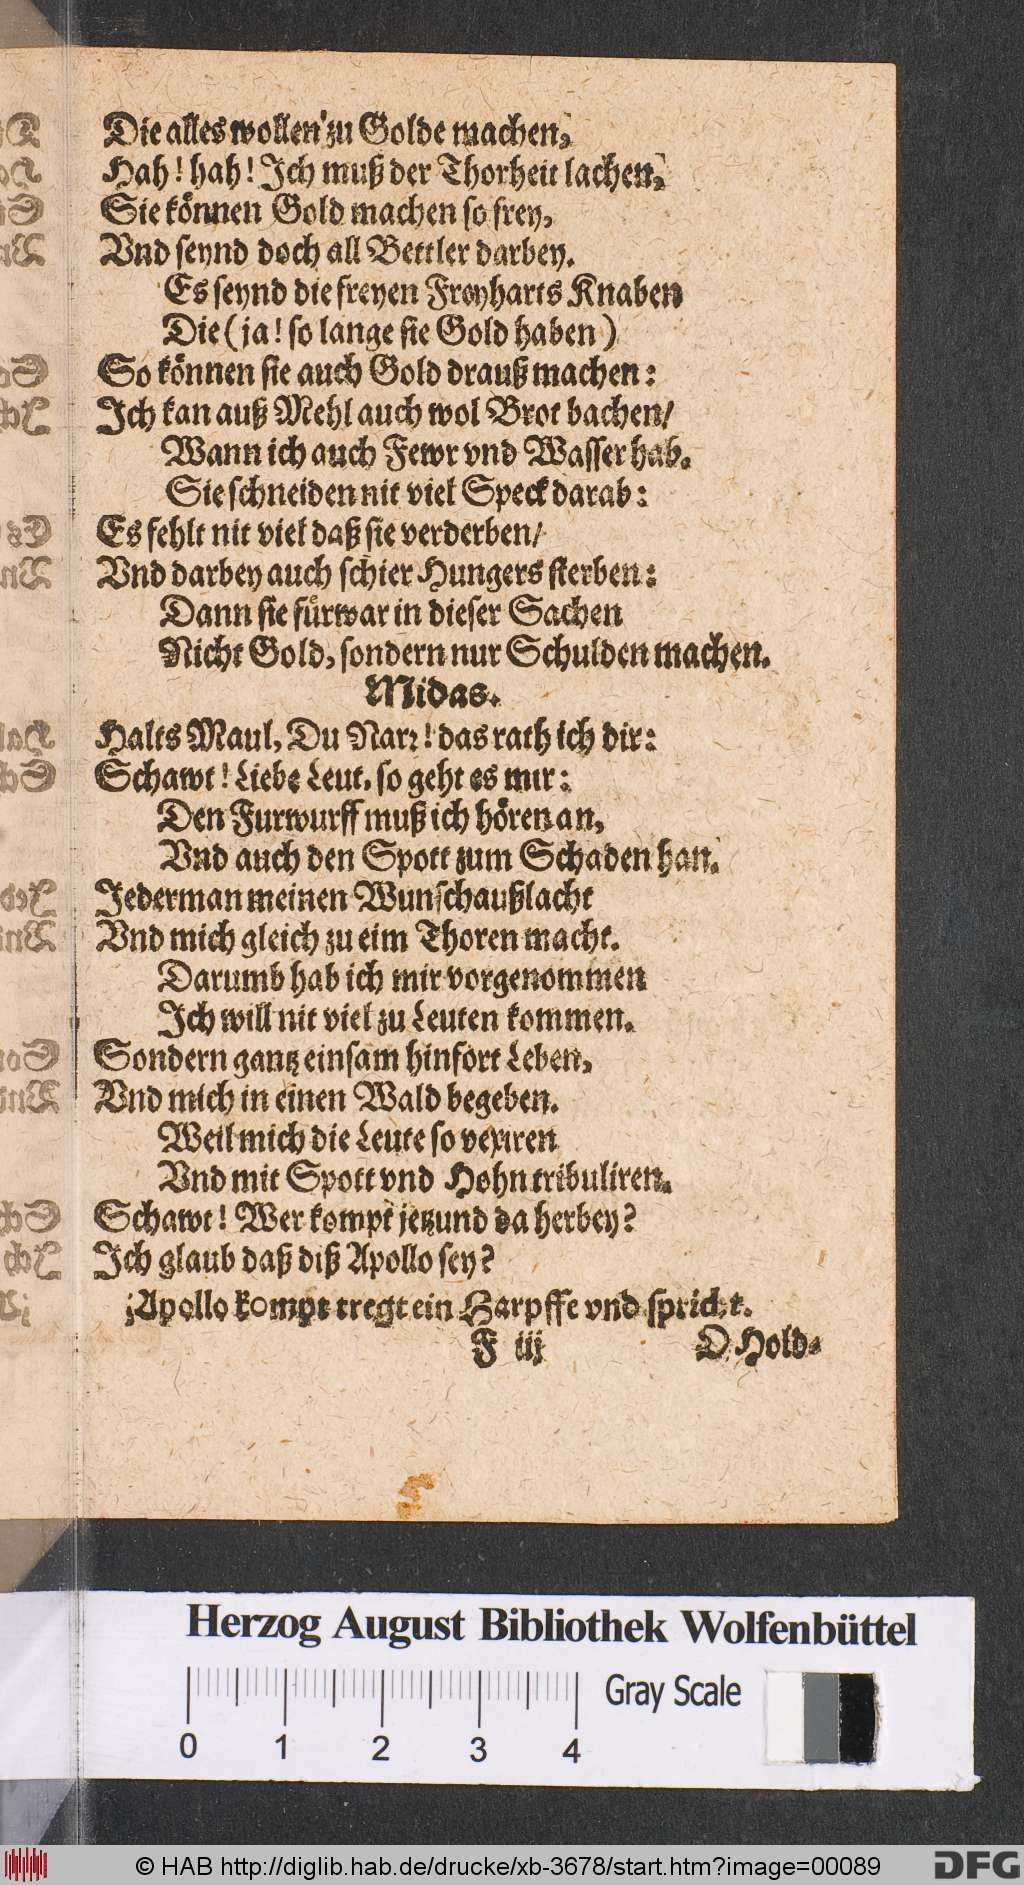 Die alles wollen zu Golde machen,
Hah! hah! Ich muß der Thorheit lachen,
Sie können Gold machen so frey,
Vnd seynd doch all Bettler darbey.
Es seynd die freyen Freyharts Knaben
Die (ja! so lange sie Gold haben)
So können sie auch Gold drauß machen:
Ich kan auß Mehl auch wol Brot bachen/
Wann ich auch Fewr vnd Wasser hab.
Sie schneiden nit viel Speck darab:
Es fehlt nit viel daß sie verderben/
Vnd darbey auch schier Hungers sterben:
Dann sie fürwar in dieser Sachen
Nicht Gold, sondern nur Schulden machen.
Midas.
Halts Maul, Du Narr! das rath ich dir:
Schawt! Liebe Leut, so geht es mir:
Den Furwurff muß ich hören an,
Vnd auch den Spott zum Schaden han.
Jederman meinen Wunsch außlacht
Vnd mich gleich zu eim Thoren macht.
Darumb hab ich mir vorgenommen
Ich will nit viel zu Leuten kommen.
Sondern gantz einsam hinfort Leben,
Vnd mich in einen Wald begeben.
Weil mich die Leute so vexiren
Vnd mit Spott vnd Hohn tribuliren.
Schawt! Wer kompt jetzund da herbey?
Ich glaub daß diß Apollo sey?
Apollo kompt tregt ein Harpffe vnd spricht.
F iij O Hold-
Herzog August Bibliothek Wolfenbüttel
Gray Scale
0 1 2 3 4
© HAB http://diglib.hab.de/drucke/xb-3678/start.htm?image=00089
DFG